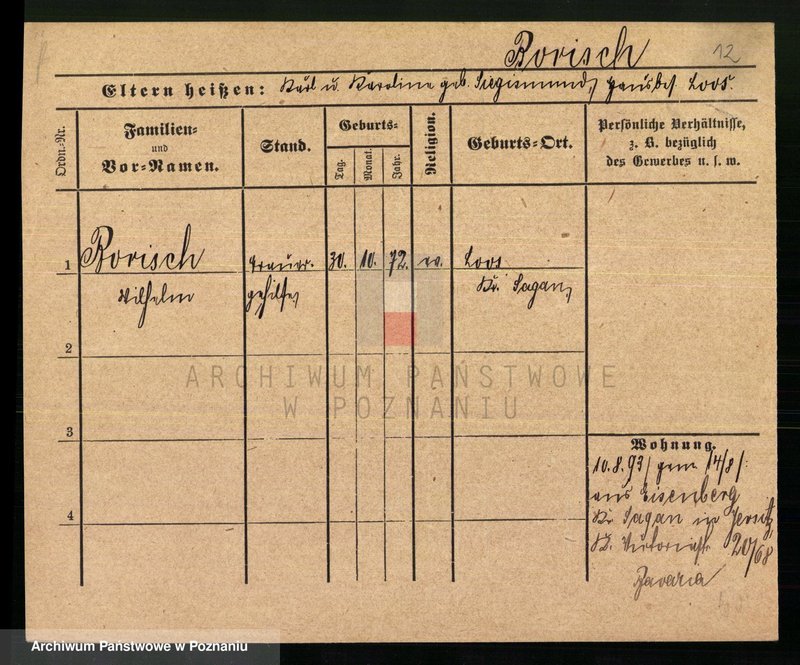 Borisch 12
Eltern heißen: Karl u. Karoline geb. Siegismund, Hausbes. Loos.
Ordn.-Nr.
Familien-
und
Vor-Namen.
Stand.
Geburts-
Tag.
Monat.
Jahr.
Religion.
Geburts-Ort.
Persönliche Verhältnisse,
z. B. bezüglich
des Gewerbes u. s. w.
1 Borisch Brauer- 30. 10. 72. ev. Loos
Wilhelm gehilfe Kr. Sagan
2
ARCHIWUM PAŃSTWOWE
W POZNANIU
3
Wohnung.
10.8.93 / gem 14/8 /:
aus Eisenberg
Kr. Sagan in Jersitz
20/68
Bavaria
4
Archiwum Państwowe w Poznaniu